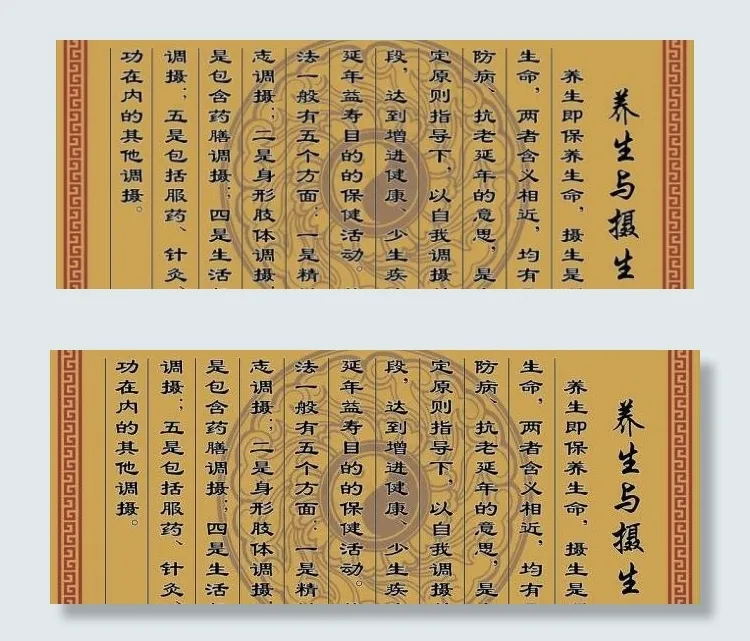 养生与摄生
养生即保养生命,摄生是
生命,两者含义相近,均有
防病、抗老延年的意思,是
定原则指导下,以自我调摄
段,达到增进健康、少生疾
延年益寿目的的保健活动。
法一般有五个方面:一是精
志调摄;二是身形肢体调摄,
是包含药膳调摄;四是生活
调摄;五是包括服药、针灸、
功在内的其他调摄。
养生与摄生
养生即保养生命,摄生是
生命,两者含义相近,均有
防病、抗老延年的意思,是
定原则指导下,以自我调摄
段,达到增进健康、少生疾
延年益寿目的的保健活动。
法一般有五个方面:一是精
志调摄;二是身形肢体调摄
是包含药膳调摄;四是生活
调摄;五是包括服药、针灸、
功在内的其他调摄。